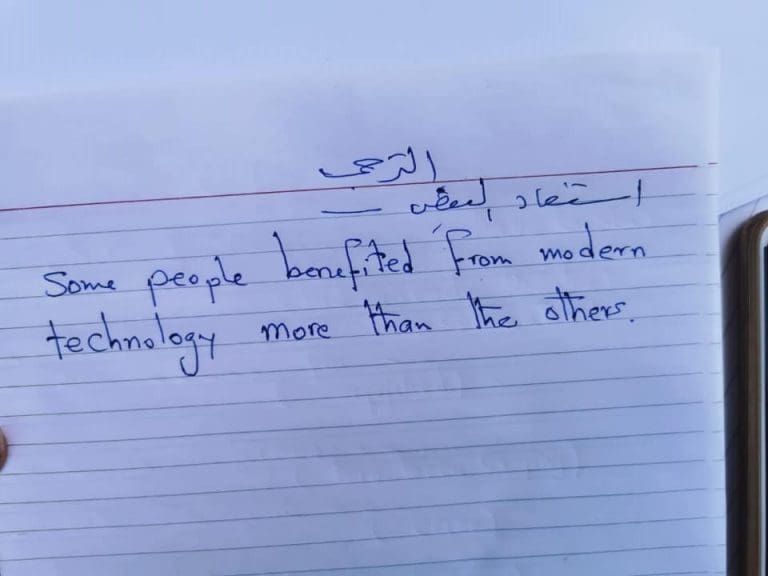 الترجمة
استفاد البعض من
Some people benefited from modern
technology more than the others.